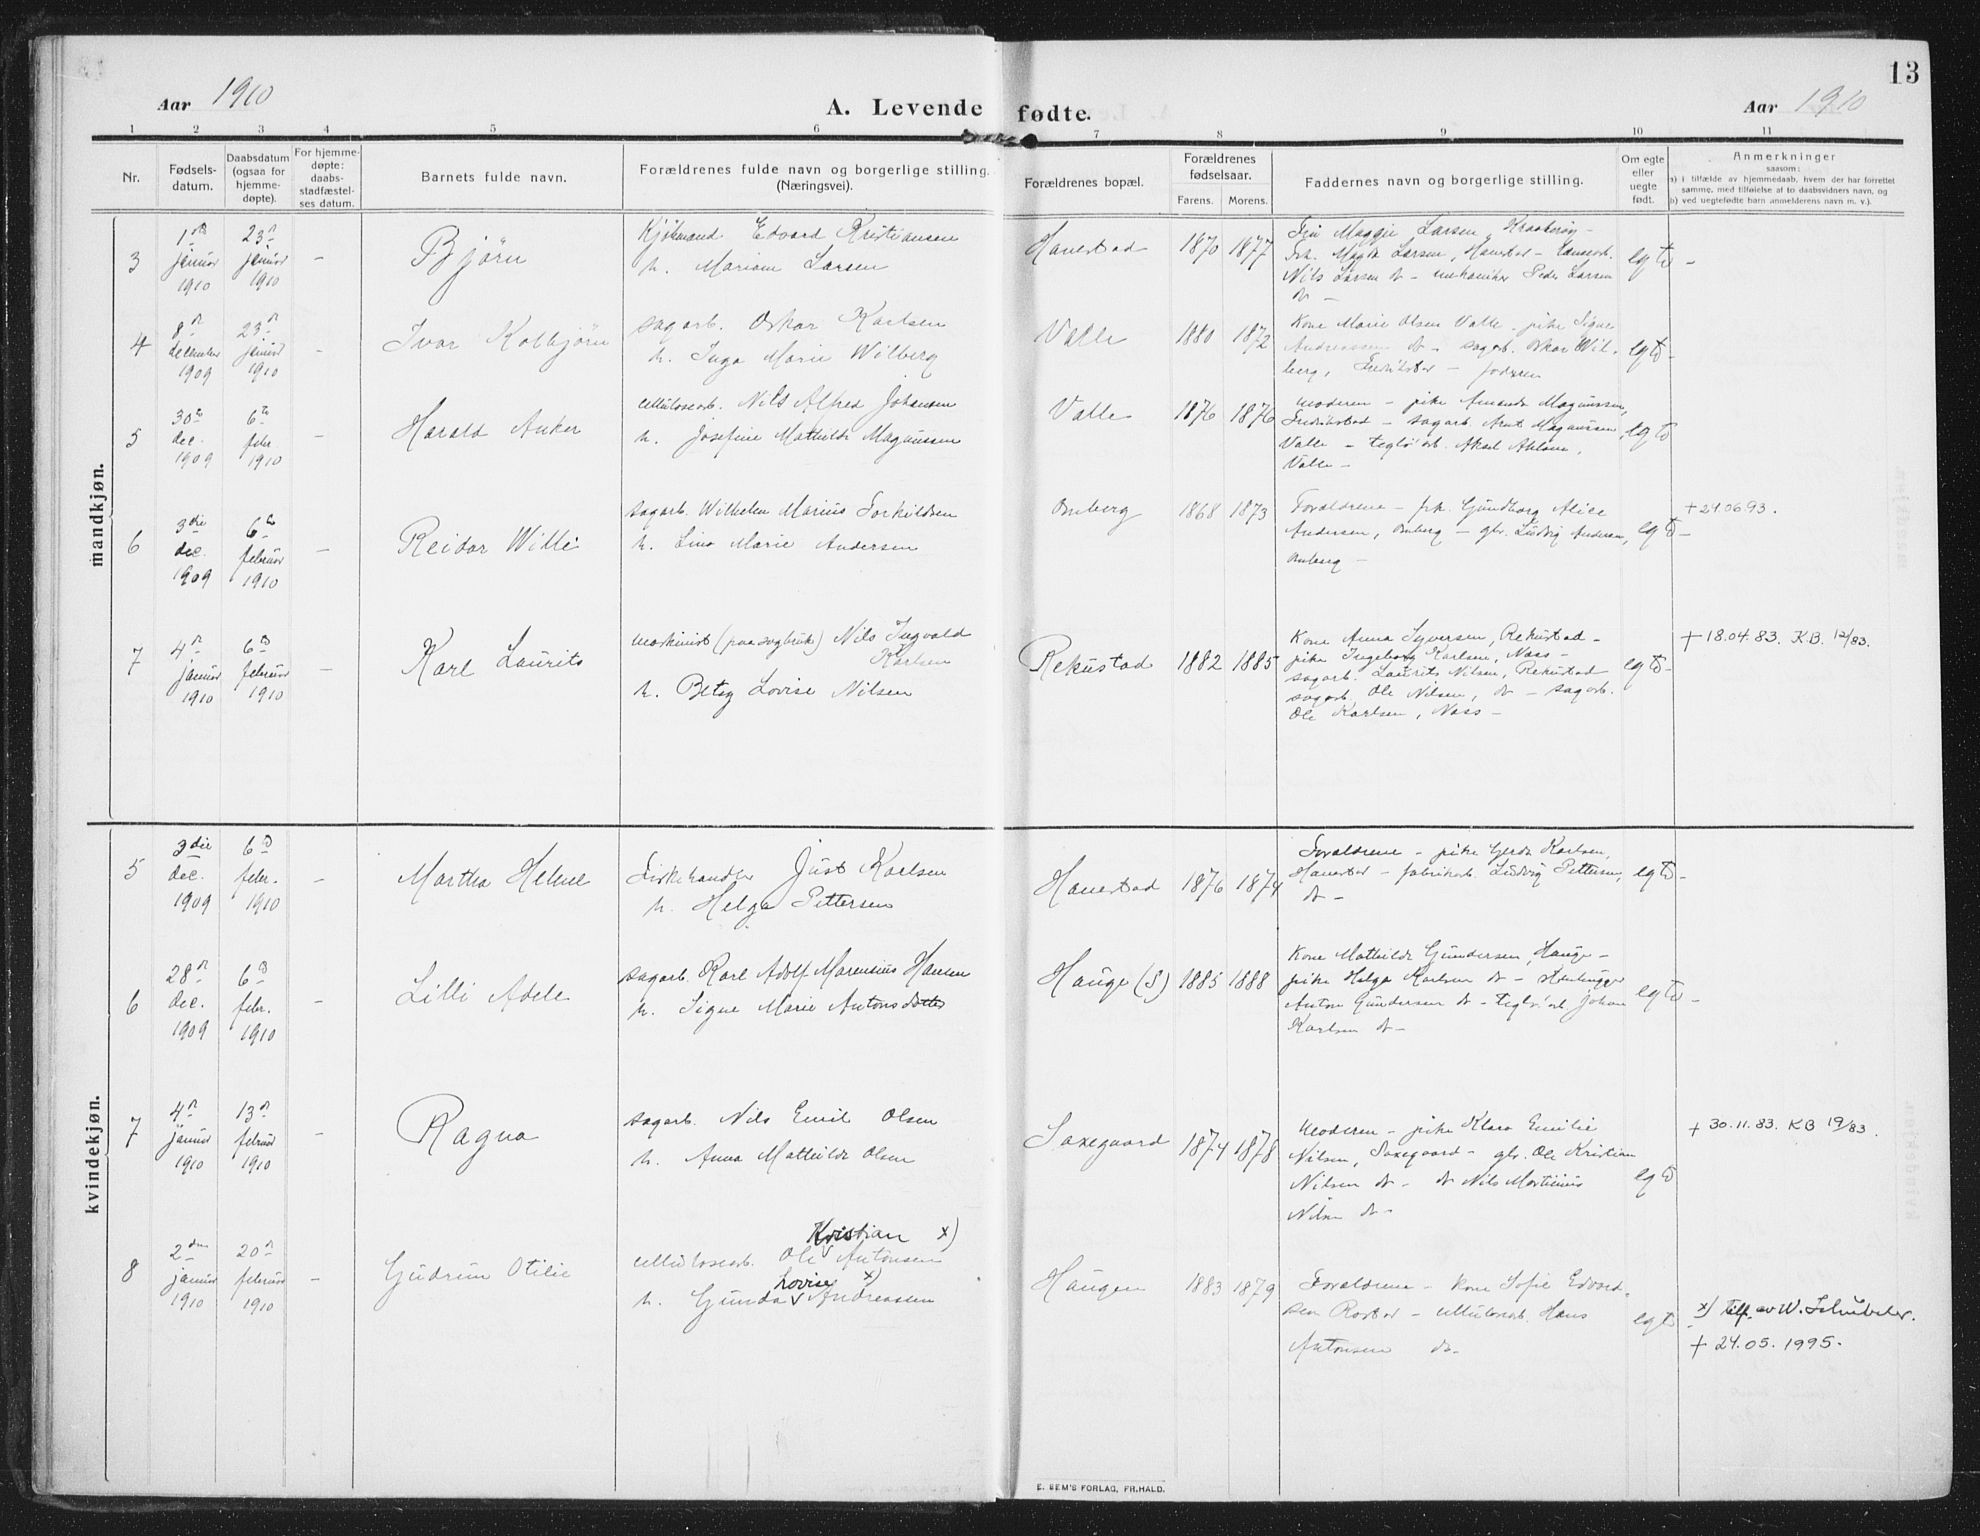 13
Aar 1910
A. Levende fødte.
Aar 1910
1 2 3 4 5 6 7 8 9 10 11
Nr.
Fødsels-
datum.
Daabsdatum
(ogsaa for
hjemme-
døpte).
For hjemme-
døpte:
daabs-
stadfæstel-
ses datum.
Barnets fulde navn.
Forældrenes fulde navn og borgerlige stilling.
(Næringsvei).
Forældrenes bopæl.
Forældrenes
fødselsaar.
Farens. Morens.
Faddernes navn og borgerlige stilling.
Om egte
eller
uegte
født.
Anmerkninger
saasom:
a) i tilfælde av hjemmedaab, hvem der har forrettet
samme, med tilføielse af to daabsvidners navn, og
b) ved uegtefødte barn anmelderens navn m. v.).
mandkjøn.
3
1ste
januar
1910
23de
januar
1910
-
Bjørn
Kjøbmand Edvard Kristiansen
h. Mariam Larsen
Hauerstad
1870 1877
Maggie Larsen
Frk. Magda Larsen, Hauerstad
Nils Larsen do - mekaniker Peder Larsen
do -
egte -
4
8de
december
1909
23de
januar
1910
-
Ivar Kolbjørn
sagarb. Oskar Karlsen
h. Inga Marie Wilberg
Valle
1880 1872
Kone Marie Olsen Valle - pike Signe
Andreassen do - sagarb. Oskar Wil-
berg, Fredrikstad -
egte -
5
30te
dec.
1909
6te
febr
1910
-
Harald Anker
cellulosearb. Nils Alfred Johansen
h. Josefine Mathilde Magnussen
Valle
1876 1876
Moderen - pike Amanda Magnussen,
Fredrikstad - sagarb. Magnussen
Valle - arb. Aksel
Valle -
egte
6
3die
dec.
1909
6te
februar
1910
-
Reidar Willi
sagarb. Wilhelm Marius Torkildsen
h. Lina Marie Andersen
Omberg
1868 1873
Forældrene - frk. Gundborg Alice
Andersen, Omberg - gbr. Ludvig Andersen,
Omberg -
egte -
+ 24.06.93.
7
4de
januar
1910
6te
februar
1910
-
Karl Laurits
maskinist (paa sagbruk) Nils Ingvald
Karlsen
h. Betzy Lovise Nilsen
Rekustad
1882 1885
Kone Anna Syversen, Rekustad -
pike Ingeborg Karlsen, Næss -
sagarb. Laurits Nilsen, Rekustad
sagarb. Ole Nilsen, do - sagarb.
Ole Karlsen, Næss -
egte -
+ 18.04.83. KB. 12/83.
kvindekjøn.
5
3die
dec.
1909
6te
febr.
1910
-
Martha Helene
Fiskehandler Just Karlsen
h. Helga Pettersen
Hauerstad
1876 1874
Forældrene - pike Gerda Karlsen,
Hauerstad - fabrikarb. Ludvig Pettersen,
do -
egte -
6
28de
dec.
1909
6te
febr.
1910
-
Lilli Adele
sagarb. Karl Adolf Marensius Hansen
h. Signe Marie Antonsdatter
Hauge (S)
1885 1888
Kone Mathilde Gundersen, Hauge -
pike Helga Karlsen do -
Anton Gundersen do - arb. Johan
Karlsen do -
egte -
7
4de
januar
1910
13de
februar
1910
-
Ragna
sagarb. Nils Emil Olsen
h. Anna Mathilde Olsen
Saxegaard
1874 1878
Moderen - pike Klara Emilie
Nilsen, Saxegaard - gbr. Ole Kristian
Nilsen do - do Nils Martinius
Nilsen do -
egte
+ 30.11.83. KB 19/83.
8
2den
januar
1910
20de
februar
1910
-
Gudrun Otilie
Kristian x)
cellulosearb. Ole Antonsen
Lovise x)
h. Gunda Andreassen
Haugen
1883 1879
Forældrene - kone Sofie Edvard-
sen - cellulosearb. Hans
Antonsen do -
egte
x) Tilf. av W. Schübeler.
+ 24.05.1995.
E. SEM'S FORLAG, FR.HALD.